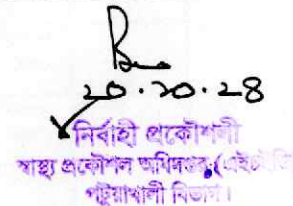 ২০.১০.২৪
নির্বাহী প্রকৌশলী
স্বাস্থ্য প্রকৌশল অধিদপ্তর (এইচইডি
পটুয়াখালী বিভাগ।